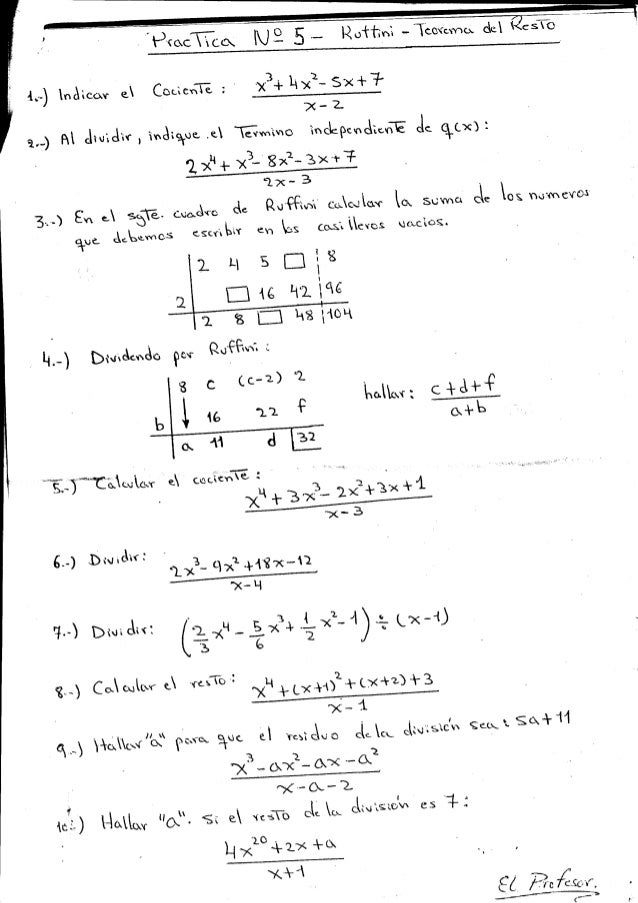 Practica Nº 5 - Ruffini - Teorema del Resto
1.-) Indicar el Cociente : x³+4x²-5x+7 / x-2
2.-) Al dividir, indique el Termino independiente de q(x) :
2x⁴+x³-8x²-3x+7 / 2x-3
3.-) En el sgte. cuadro de Ruffini calcular la suma de los numeros
que debemos escribir en los casilleros vacios.
2 4 5 □ 8
2 □ 16 42 96
2 8 □ 48 104
4.-) Dividendo por Ruffini :
8 c (c-2) 2
b ↓ 16 22 f
a 11 d 32
hallar: c+d+f / a+b
5.-) Calcular el cociente :
x⁴+3x³-2x²+3x+1 / x-3
6.-) Dividir: 2x³-9x²+18x-12 / x-4
7.-) Dividir: (2/3 x⁴ - 5/6 x³ + 1/2 x² - 1) ÷ (x-1)
8.-) Calcular el resto : x⁴+(x+1)²+(x+2)+3 / x-1
9.-) Hallar "a" para que el residuo de la división sea : 5a+11
x³-ax²-ax-a² / x-a-2
10.-) Hallar "a". Si el resto de la división es 7 :
4x²⁰+2x+a / x+1
El Profesor.